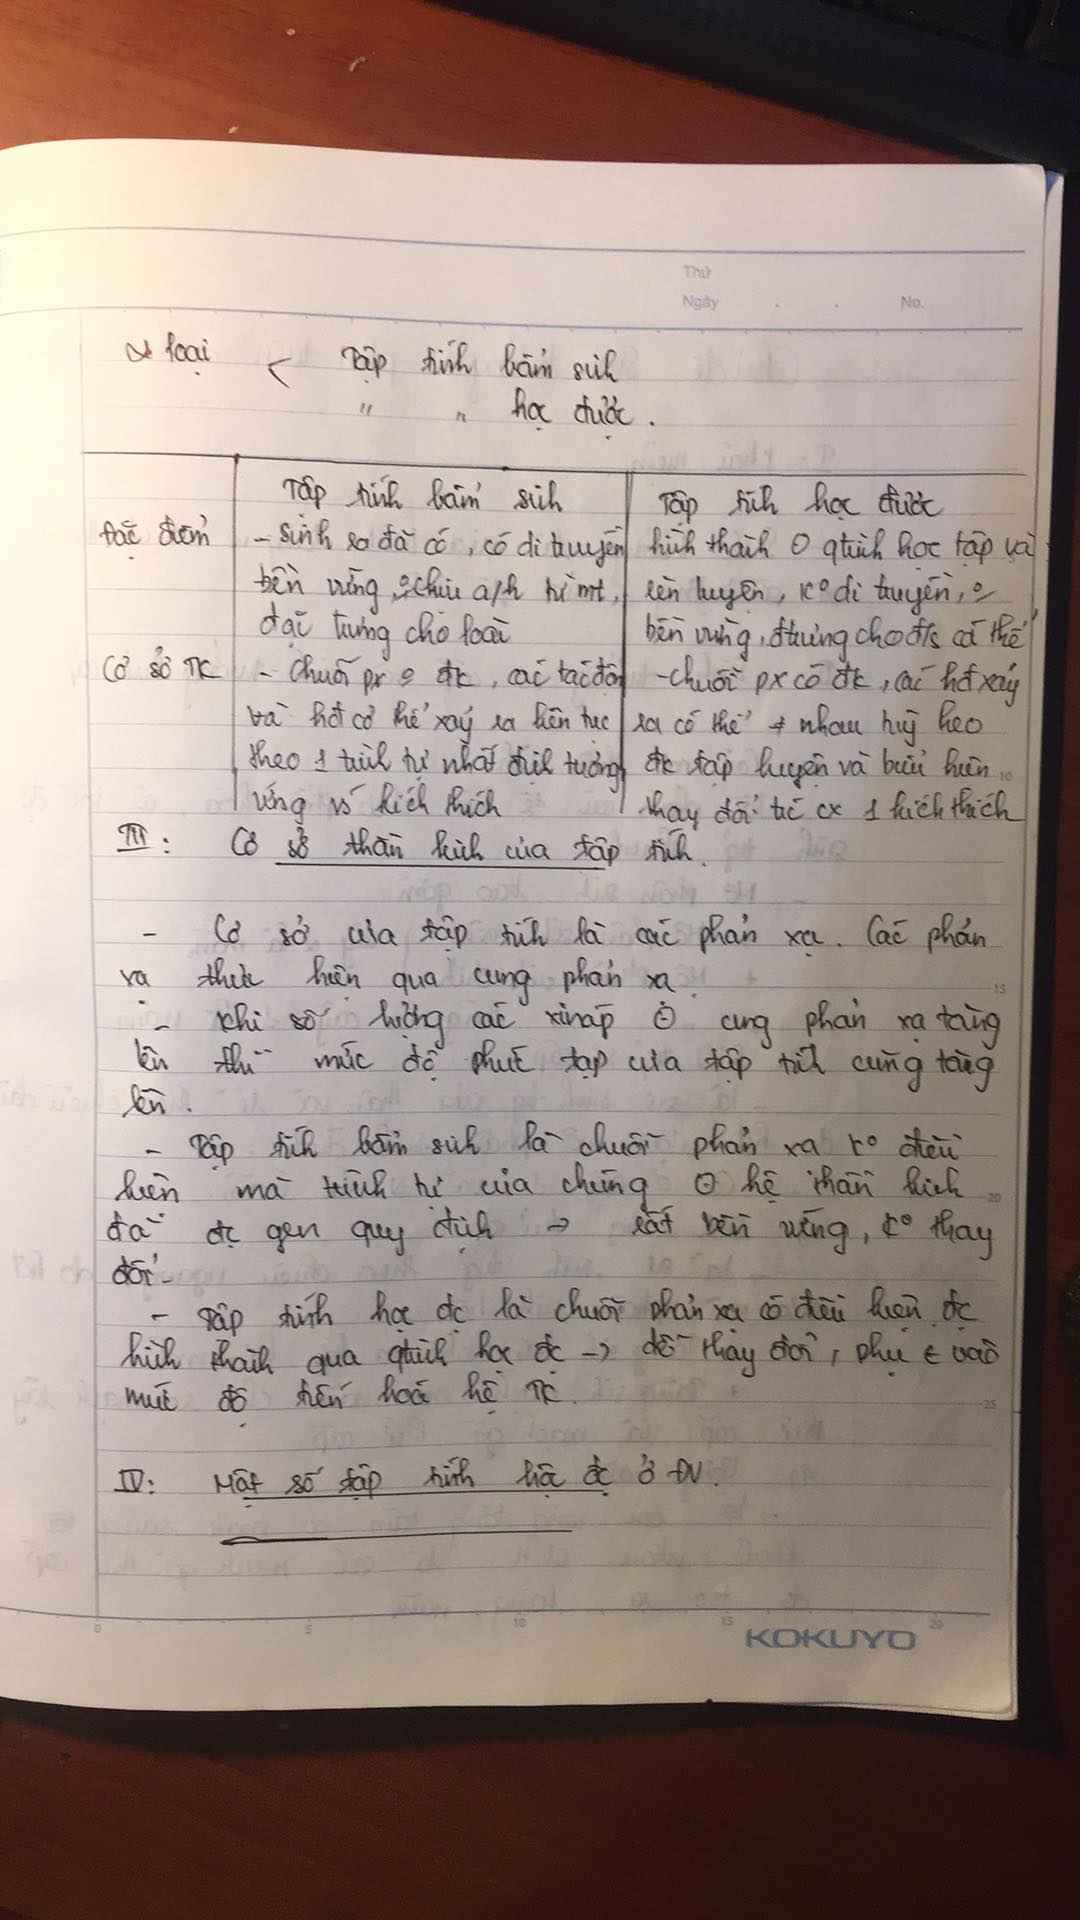 Thứ
Ngày . . No.
2 loại < Tập tính bẩm sinh
" " học được.
Tập tính bẩm sinh Tập tính học được
Đặc điểm - Sinh ra đã có, có di truyền hình thành qtrình học tập và
bền vững, chịu a/h từ mt, rèn luyện, k° di truyền,
đặc trưng cho loài bền vững, đtrưng cho đ/s cá thể
Cơ sở TK - Chuỗi px đk, các tác động -chuỗi px có đk, các hđ xảy
và hđ cơ thể xảy ra liên tục ra có thể ≠ nhau tuỳ theo
theo 1 trình tự nhất định tương đk tập luyện và biểu hiện 10
ứng vs kích thích thay đổi trc cx 1 kích thích
III: Cơ sở thần kinh của tập tính.
- Cơ sở của tập tính là các phản xạ. Các phản
xạ thực hiện qua cung phản xạ. 15
- Khi số lượng các xináp cung phản xạ tăng
lên thì mức độ phức tạp của tập tính cũng tăng
lên.
- Tập tính bẩm sinh là chuỗi phản xạ k° điều
kiện mà trình tự của chúng hệ thần kinh 20
đã đc gen quy định → rất bền vững, k° thay
đổi.
- Tập tính học đc là chuỗi phản xạ có điều kiện đc
hình thành qua qtrình học đc → dễ thay đổi, phụ t vào
mức độ tiến hoá hệ TK. 25
IV: Một số tập tính học đc ở ĐV.
0 5 10 15 20
KOKUYO